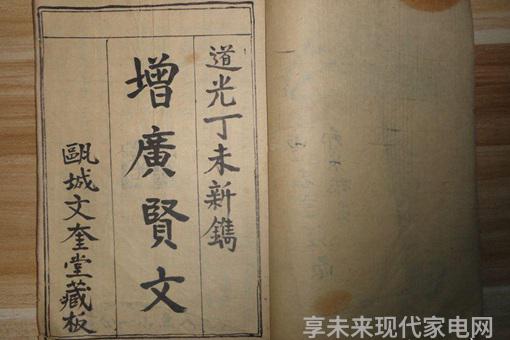 道光丁未新鐫
增廣賢文
甌城文奎堂藏板
享未来现代家电网